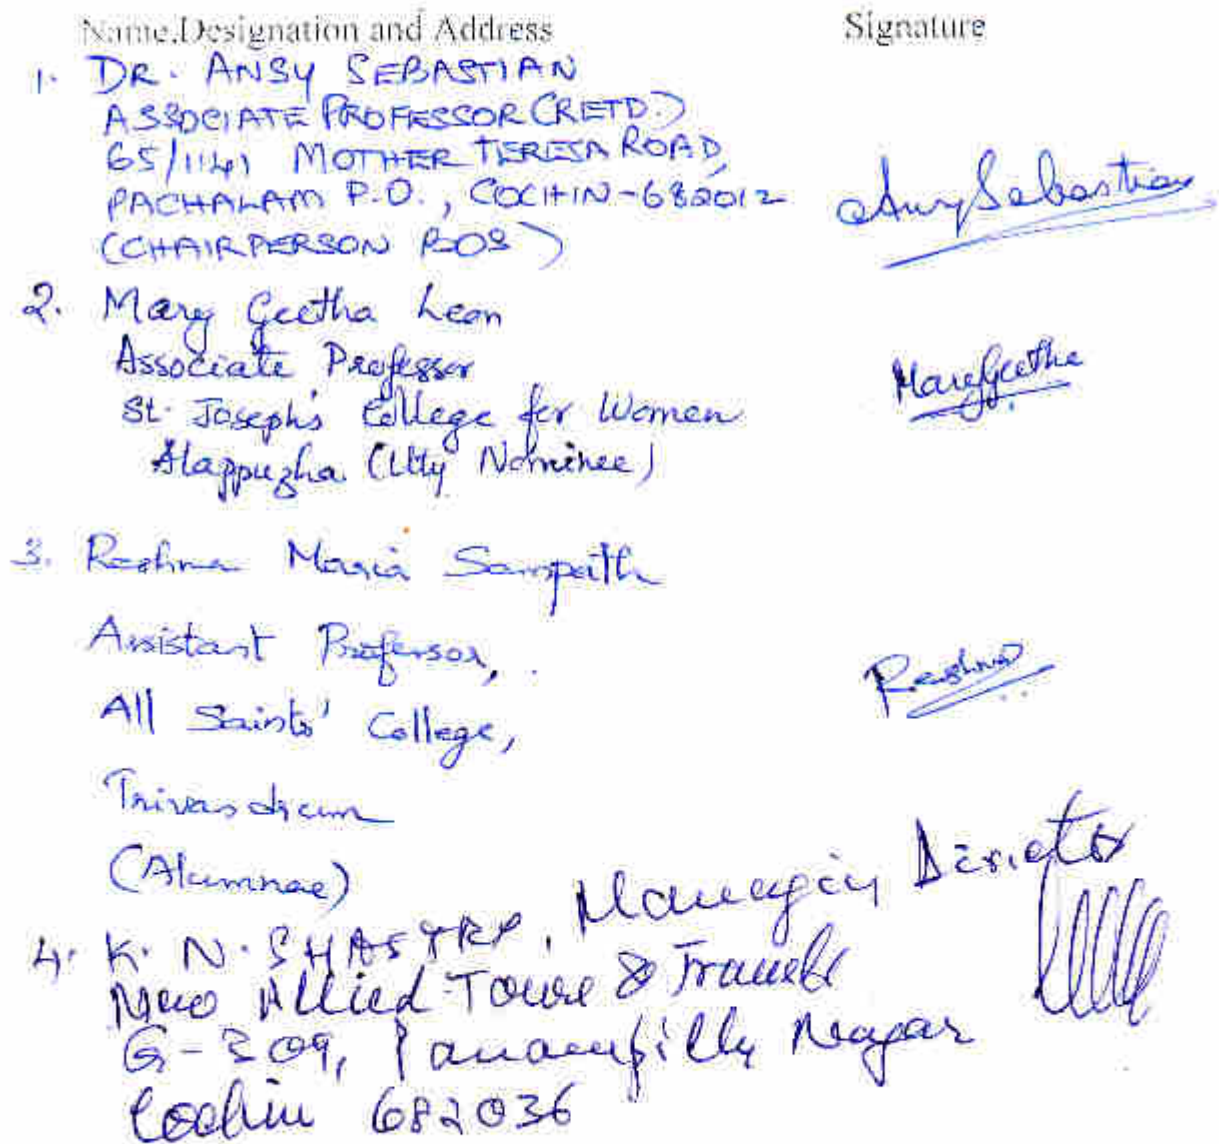 Name,Designation and Address Signature
1. DR. ANSY SEBASTIAN
ASSOCIATE PROFESSOR (RETD.)
65/1141 MOTHER TERESA ROAD,
PACHALAM P.O., COCHIN-682012
(CHAIRPERSON BOS)
Ansy Sebastian
2. Mary Geetha Leon
Associate Professor
St. Joseph's College for Women
Alappuzha (Uty Nominee)
Mary Geetha
3. Reshma Maria Sampath
Assistant Professor,
All Saints' College,
Trivandrum
(Alumnae)
Reshma
4. K. N. SHASTRY, Managing Director
New Allied Tours & Travels
G-309, Panampilly Nagar
Cochin 682036